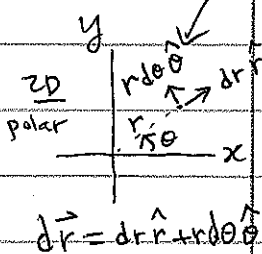 y
2D
polar
r dθ θ̂
dr r̂
r
θ
x
dr⃗ = dr r̂ + r dθ θ̂